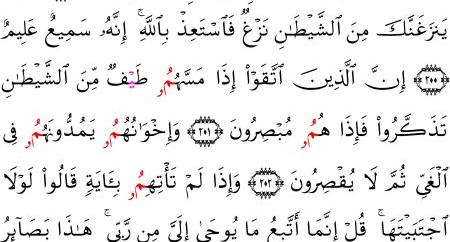 يَنزَغَنَّكَ مِنَ ٱلشَّيْطَٰنِ نَزْغٌ فَٱسْتَعِذْ بِٱللَّهِۚ إِنَّهُۥ سَمِيعٌ عَلِيمٌ
﴿٢٠٠﴾ إِنَّ ٱلَّذِينَ ٱتَّقَوْا۟ إِذَا مَسَّهُمُۥ طَيْفٌ مِّنَ ٱلشَّيْطَٰنِ
تَذَكَّرُوا۟ فَإِذَا هُمُۥ مُبْصِرُونَ ﴿٢٠١﴾ وَإِخْوَٰنُهُمُۥ يَمُدُّونَهُمُۥ فِى
ٱلْغَىِّ ثُمَّ لَا يُقْصِرُونَ ﴿٢٠٢﴾ وَإِذَا لَمْ تَأْتِهِمُۥ بِـَٔايَةٍ قَالُوا۟ لَوْلَا
ٱجْتَبَيْتَهَاۚ قُلْ إِنَّمَآ أَتَّبِعُ مَا يُوحَىٰٓ إِلَىَّ مِن رَّبِّىۚ هَٰذَا بَصَآئِرُ